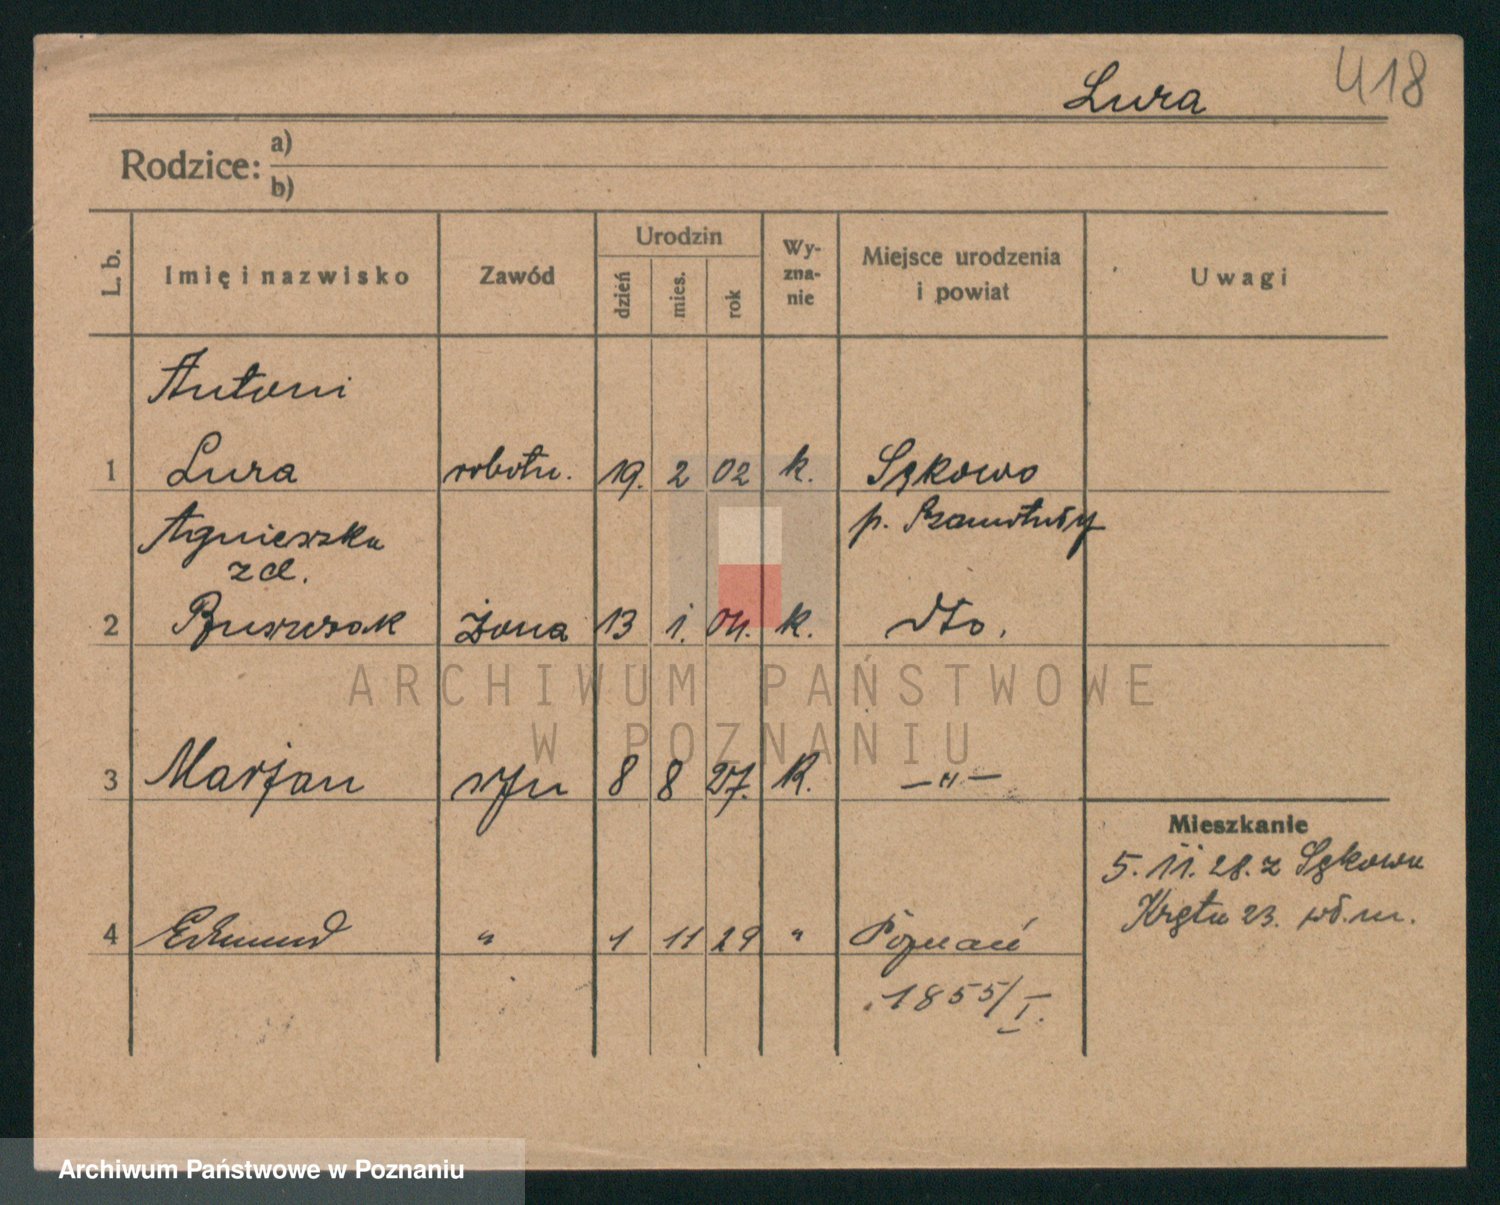 418
Lura
Rodzice: a)
b)
L. b.
Imię i nazwisko
Zawód
Urodzin
dzień
mies.
rok
Wy-
zna-
nie
Miejsce urodzenia
i powiat
Uwagi
Antoni
1 Lura robotn. 19. 2 02 k. Sękowo
p. Szamotuły
Agnieszka
z d.
2 żona 13 1. 04. k. dto.
3 Marjan syn 8 8 27. k. —"—
4 Edmund " 1 11 29 " Poznań
1855/I.
Mieszkanie
5. 11. 28. z Sękowa
23.
ARCHIWUM PAŃSTWOWE
W POZNANIU
Archiwum Państwowe w Poznaniu